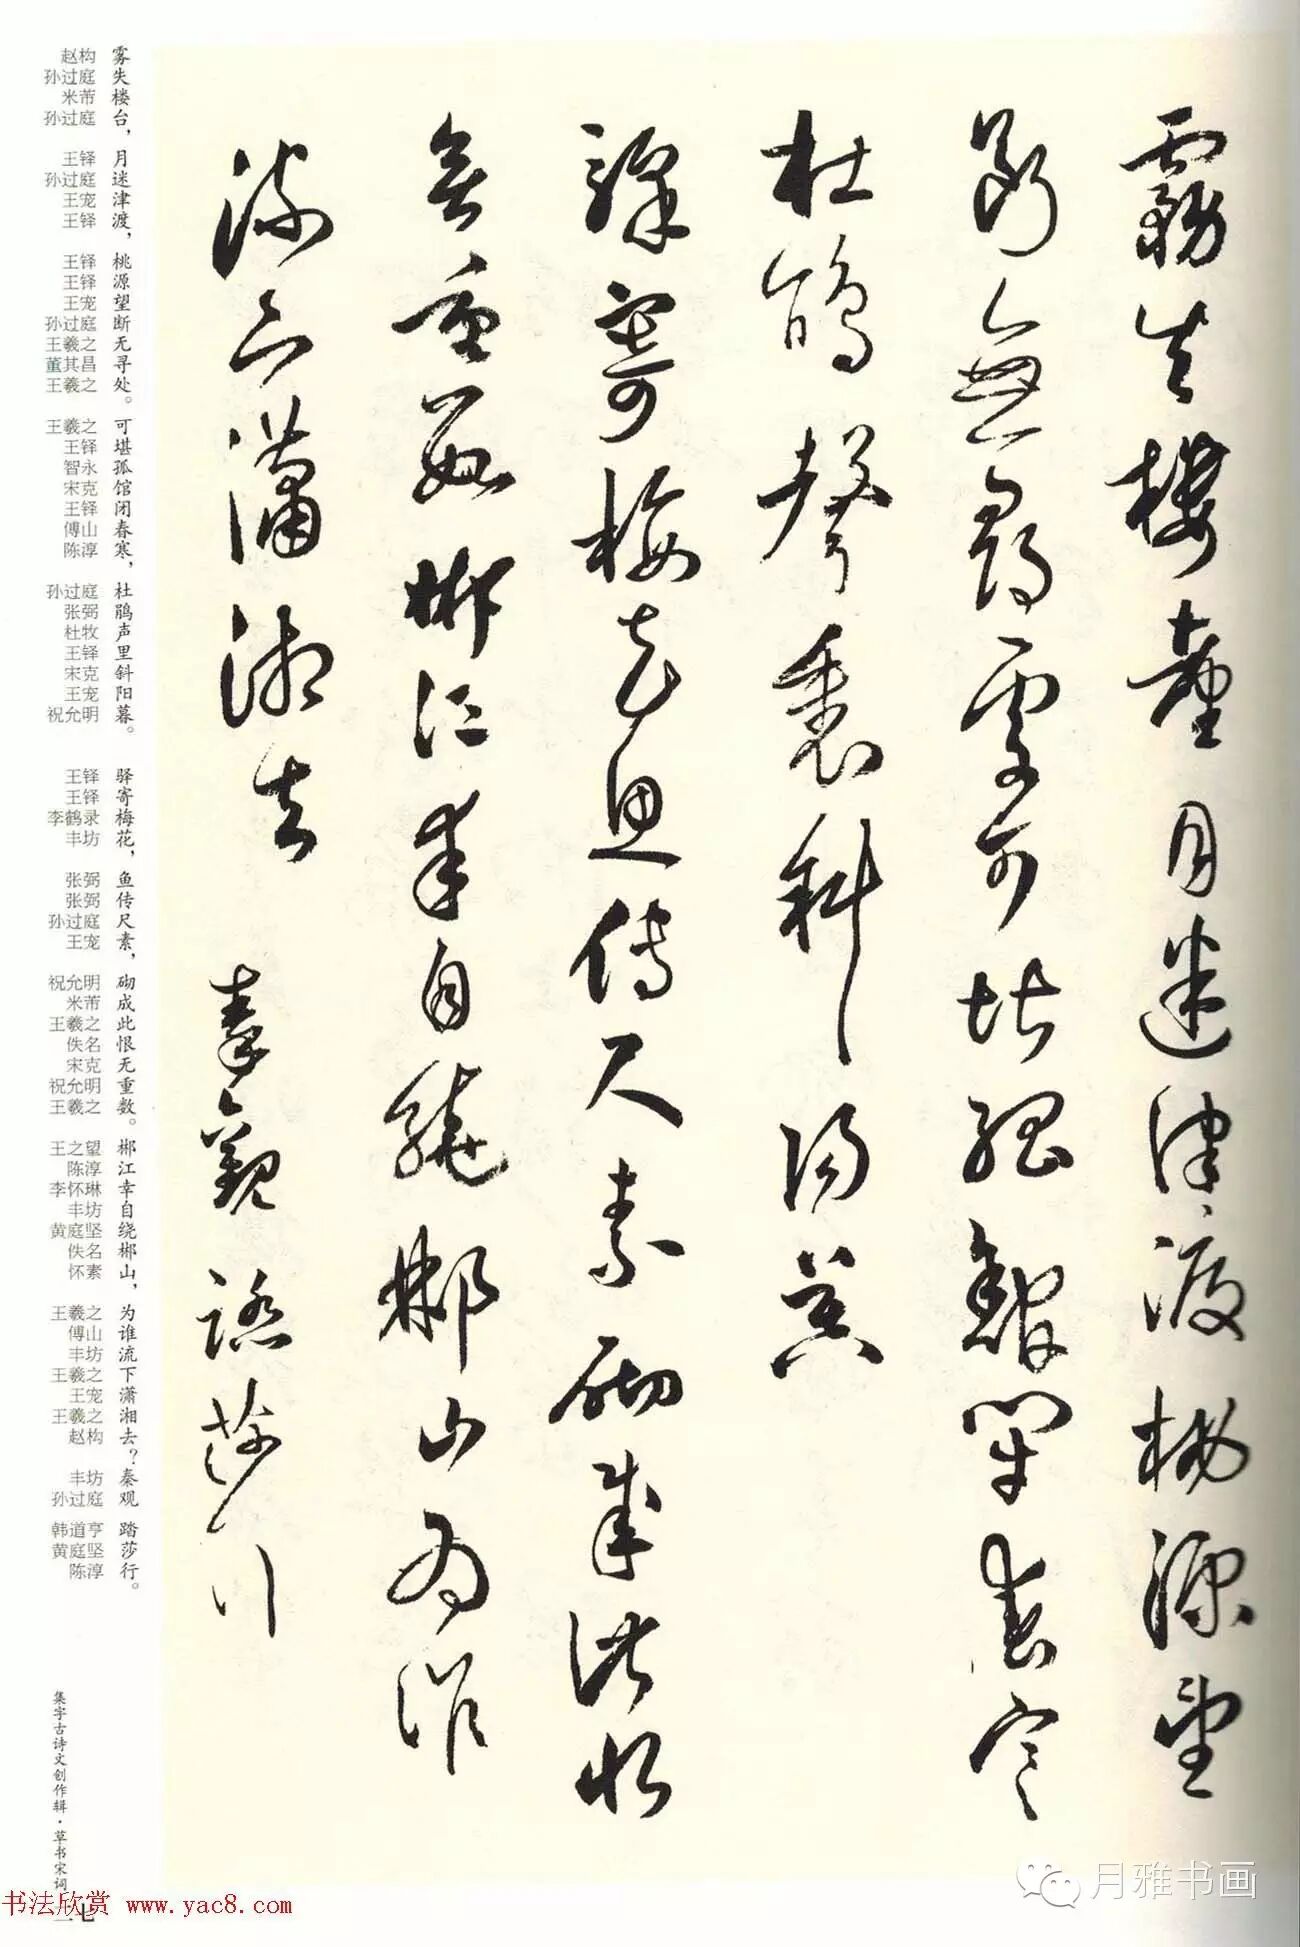 霧失樓臺月迷津渡桃源望
斷無尋處可堪孤館閉春寒
杜鵑聲裏斜陽暮
驛寄梅花魚傳尺素砌成此恨
無重數郴江幸自繞郴山為誰
流下瀟湘去 秦觀踏莎行
雾失楼台，月迷津渡，桃源望断无寻处。可堪孤馆闭春寒，杜鹃声里斜阳暮。 驿寄梅花，鱼传尺素，砌成此恨无重数。郴江幸自绕郴山，为谁流下潇湘去？ 秦观 踏莎行。
赵构 孙过庭 米芾 孙过庭 王铎 孙过庭 王宠 王铎 王铎 王铎 王宠 孙过庭 王羲之 董其昌 王羲之 王羲之 王铎 智永 宋克 王铎 傅山 陈淳 孙过庭 张弼 杜牧 王铎 宋克 王宠 祝允明 王铎 王铎 李鹤录 丰坊 张弼 张弼 孙过庭 王宠 祝允明 米芾 王羲之 佚名 宋克 祝允明 王羲之 王之望 陈淳 李怀琳 丰坊 黄庭坚 佚名 怀素 王羲之 傅山 丰坊 王羲之 王宠 王羲之 赵构 丰坊 孙过庭 韩道亨 黄庭坚 陈淳
集字古诗文创作辑·草书宋词
二七
书法欣赏 www.yac8.com
月雅书画